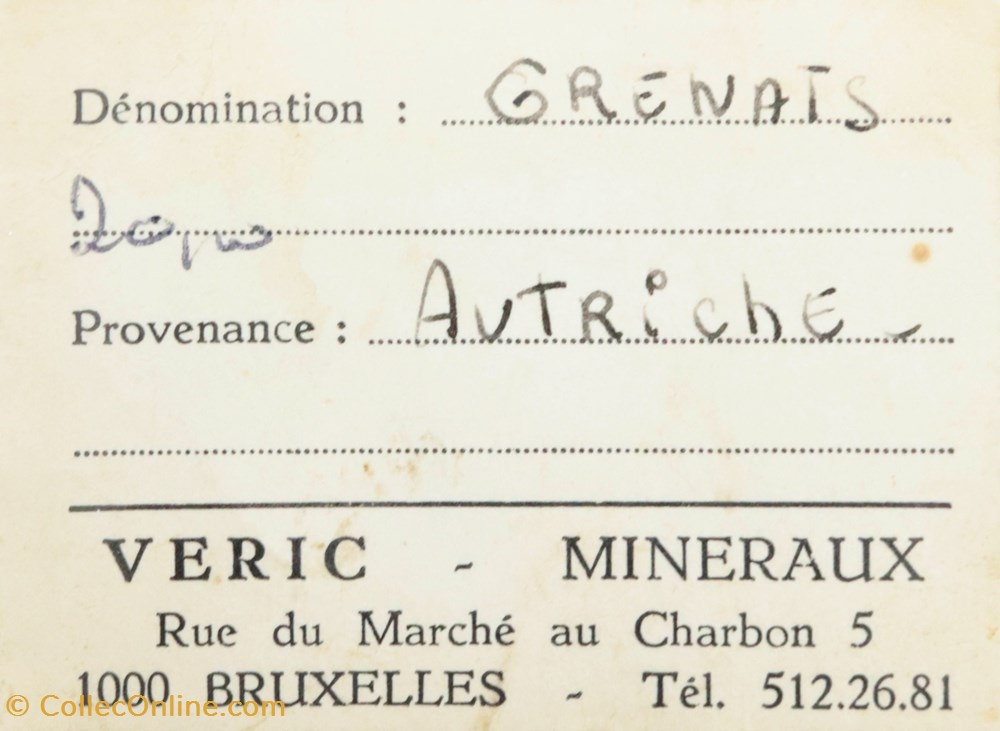 Dénomination : GRENATS
Provenance : AUTRichE -
VERIC - MINERAUX
Rue du Marché au Charbon 5
1000 BRUXELLES - Tél. 512.26.81
© CollecOnline.com